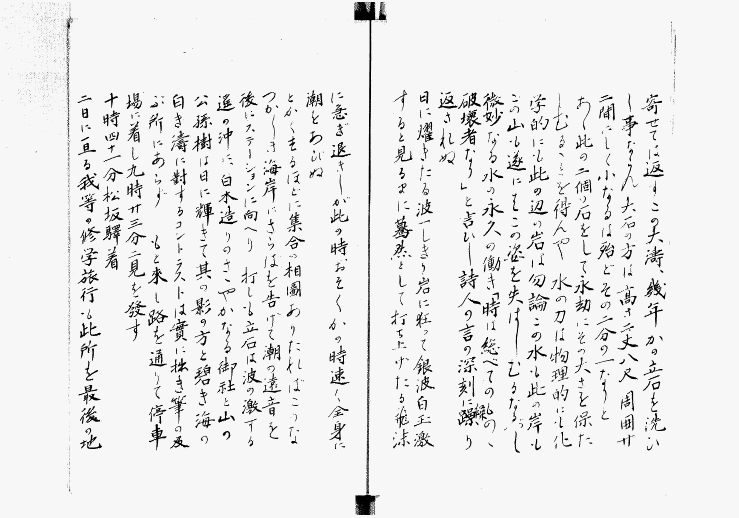 寄せては返すこの大濤、幾年かの立石を洗ひ
し事ならん大石の方は高さ二丈八尺周囲廿
二間にして小なるは殆どその二分の一なりと
あゝ此の二個の石をして永劫にその大さを保た
しむることを得んや 水の力は物理的にも化
学的にも此の辺の岩は勿論この水も此の岸も
この山も遂にはこの姿を失はしむるならん
微妙なる水の永久の働き「時は総べてのものゝ
破壊者なり」と言ひし詩人の言の深刻に躁り
返されぬ
日に燿きたる波一しきり岩に狂って銀波白玉激
すると見るまに驀然として打ち上げたる飛沫
に急ぎ退きしが此の時おそくかの時速く全身に
潮をあびぬ
とかくするほどに集合の相圖ありたればこゝな
つかしき海岸にさらばを告げて潮の遠音を
後にステーションに向へり 打しも立石は波の激する
遥の沖に白木造りのさゝやかなる御社と山の
公孫樹は日に輝きて其の影の方と碧き海の
白き濤に對するコントラストは實に拙き筆の及
ぶ所にあらず もと来し路を通りて停車
場に着し九時廿三分二見を發す
十時四十一分松坂驛着
二日に亘る我等の修学旅行も此所を最後の地